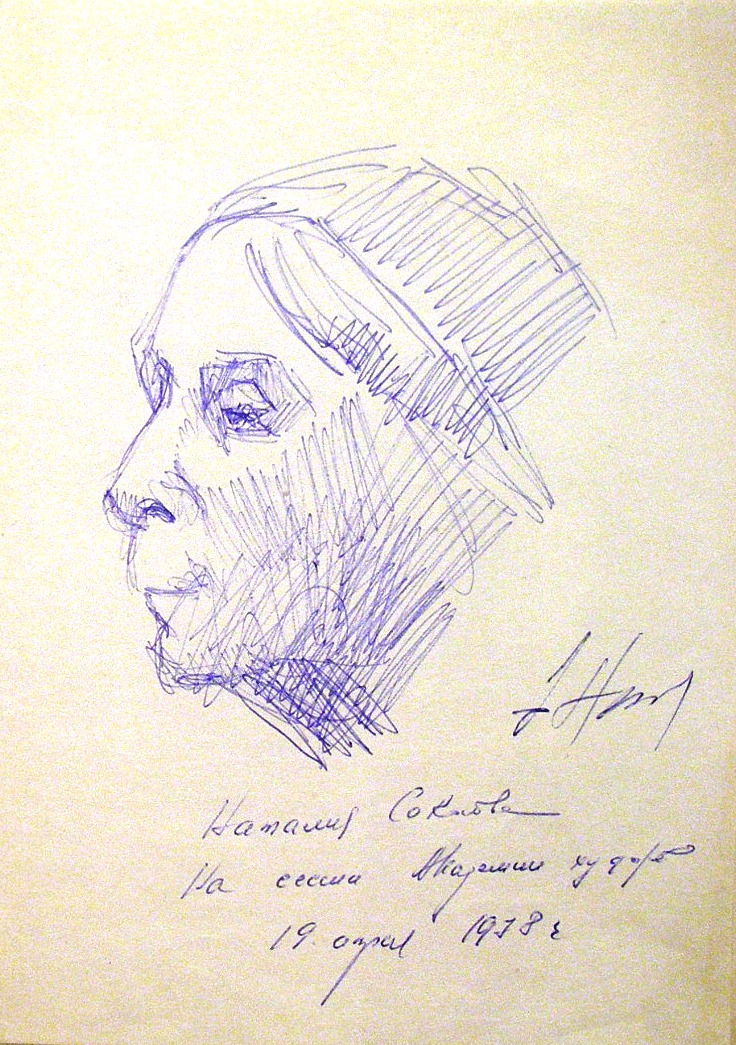 Наталия Соколова
На сессии Академии худож
19 апрел 1978 г